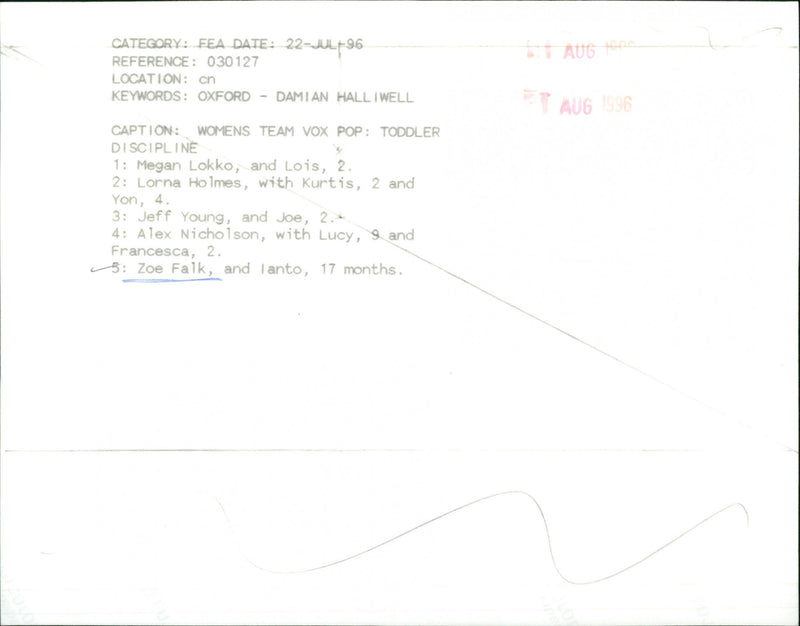 CATEGORY: FEA DATE: 22-JUL-96
REFERENCE: 030127
LOCATION: cn
KEYWORDS: OXFORD - DAMIAN HALLIWELL
AUG
AUG 1996
CAPTION: WOMENS TEAM VOX POP: TODDLER
DISCIPLINE
1: Megan Lokko, and Lois, 2.
2: Lorna Holmes, with Kurtis, 2 and
Yon, 4.
3: Jeff Young, and Joe, 2.
4: Alex Nicholson, with Lucy, 9 and
Francesca, 2.
5: Zoe Falk, and Ianto, 17 months.